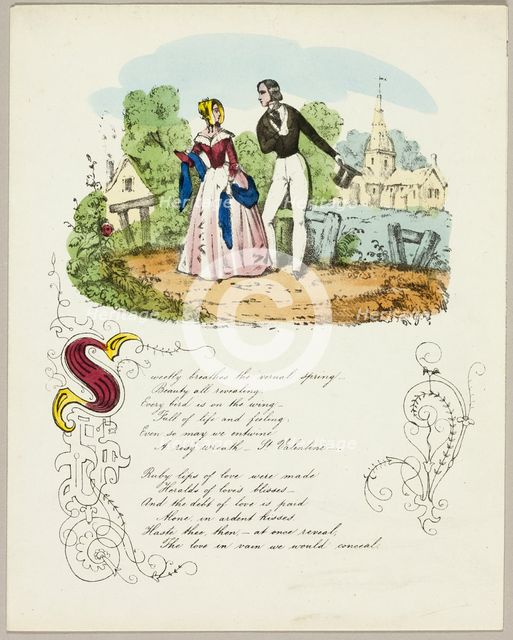 Sweetly breathes the vernal spring—
Beauty all revealing.
Every bird is on the wing—
Full of life and feeling;
Even so may we entwine
A rosy wreath — St Valentine—
Ruby lips of love were made
Heralds of love's blisses—
And the debt of love is paid
More in ardent kisses.
Haste thee, then, — at once reveal,
The love in vain we would conceal.